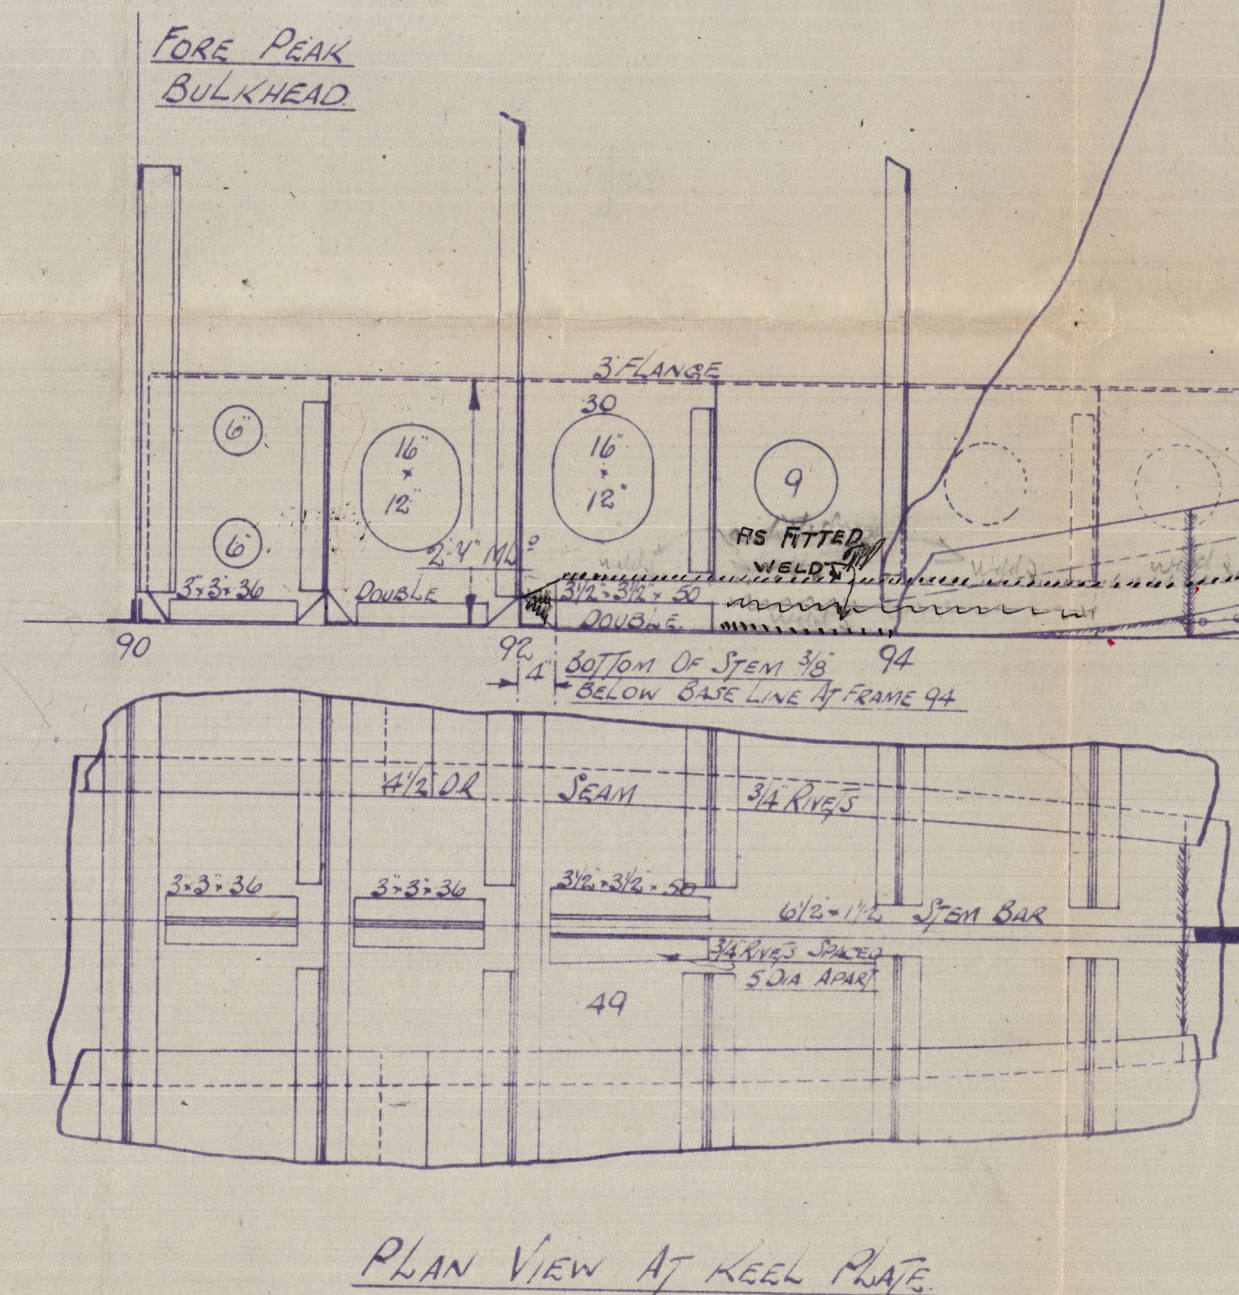 FORE PEAK
BULKHEAD
3" FLANGE
30
6"
16"
×
12"
16"
×
12"
9
6"
AS FITTED
WELDT
2'-4" MLD
3"×3"×36
DOUBLE
3½"×3½"×50
DOUBLE
90
92
94
4"
BOTTOM OF STEM 3/8"
BELOW BASE LINE AT FRAME 94
4½ DR
SEAM
3/4 RIVETS
3"×3"×36
3"×3"×36
3½"×3½"×50
6½"×1½" STEM BAR
3/4 RIVETS SPACED
5 DIA APART
49
PLAN VIEW AT KEEL PLATE.